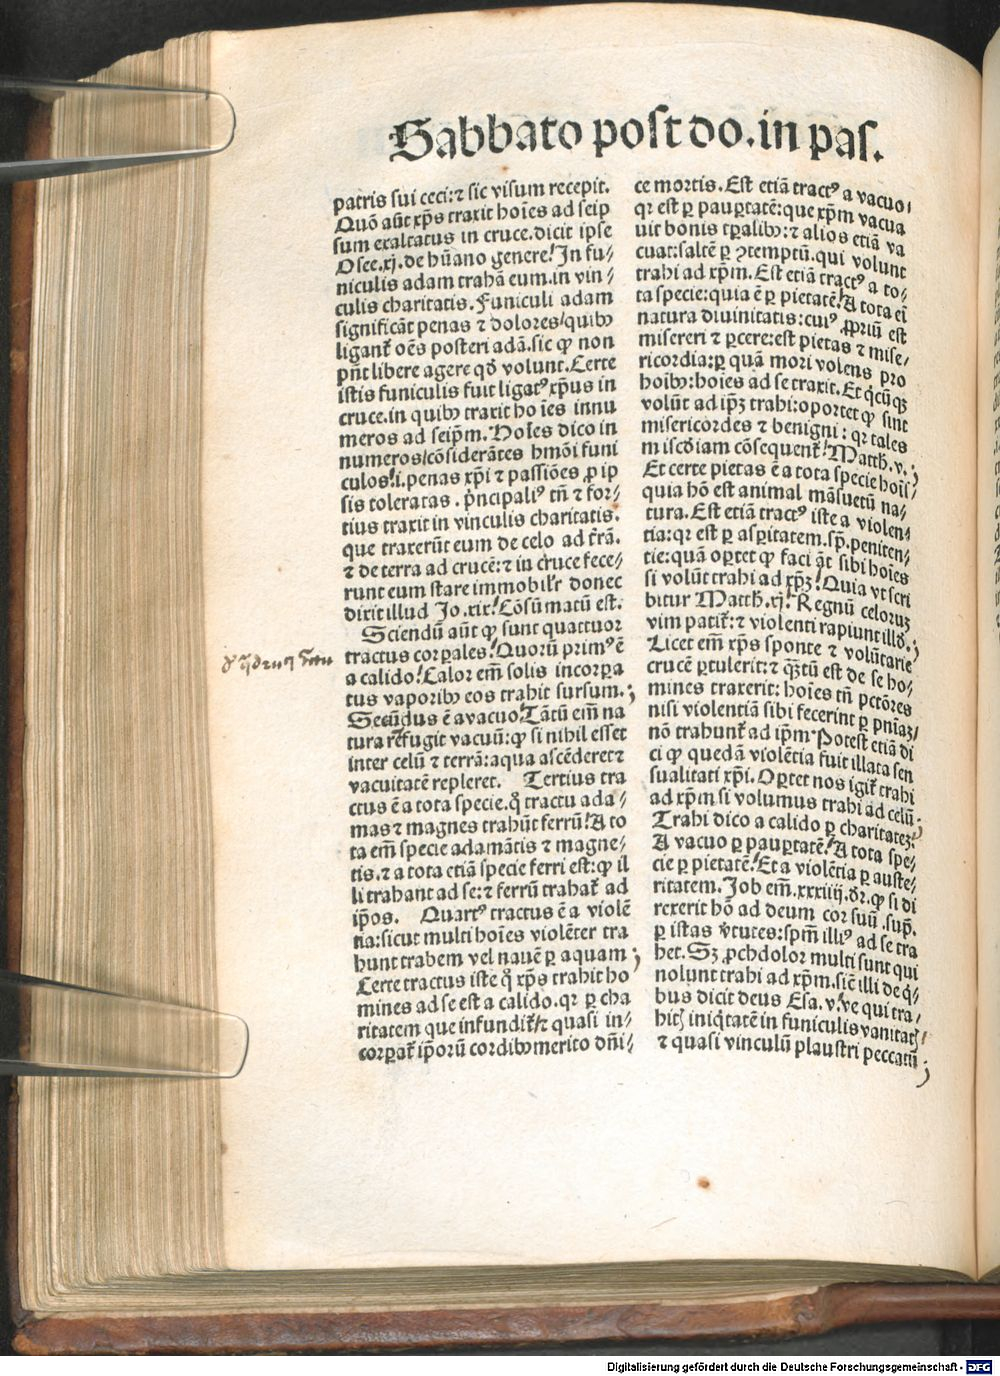 Sabbato post do. in pas.
patris sui ceci: ⁊ sic visum recepit.
Quō aūt xp̄s traxit hoīes ad seip
sum exaltatus in cruce. dicit ipse
Osee. xj. de hūano genere! In fu⸗
niculis adam trahā eum. in vin⸗
culis charitatis. Funiculi adam
significāt penas ⁊ dolores/ quibꝰ
ligant̃ oēs posteri adā. sic ꝙ non
pñt libere agere qð volunt. Certe
istis funiculis fuit ligatꝰ xp̄us in
cruce. in quibꝰ traxit hoīes innu
meros ad seip̄m. Hoīes dico in
numeros/ cōsiderātes hmōi funi
culos! .i. penas xp̄i ⁊ passiōes ꝓ ip
sis toleratas. pͥncipaliꝰ tñ ⁊ for⸗
tius traxit in vinculis charitatis.
que traxerūt eum de celo ad t̃rā.
⁊ de terra ad crucē: ⁊ in cruce fece⸗
runt eum stare immobilr̄ donec
dixit illud Jo. xix! Cōsūmatū est.
Sciendū aūt ꝙ sunt quattuor
tractus corꝑales! Quorū primꝰ ē
a calido! Calor em̄ solis incorpa
tus vaporibꝰ eos trahit sursum.;
Secūdus ē a vacuo! Tātū em̄ na
tura refugit vacuū: ꝙ si nihil esset
inter celū ⁊ terrā: aqua ascēderet ⁊
vacuitatē repleret. Tertius tra
ctus ē a tota specie. qͦ tractu ada⸗
mas ⁊ magnes trahūt ferrū! A to
ta em̄ specie adamātis ⁊ magne⸗
tis. ⁊ a tota etiā specie ferri est: ꝙ il
li trahant ad se: ⁊ ferrū trahat̃ ad
ip̄os. Quartꝰ tractus ē a violē
tia: sicut multi hoīes violēter tra
hunt trabem vel nauē ꝑ aquam;
Certe tractus iste qͦ xp̄s trahit ho
mines ad se est a calido. qr ꝑ cha
ritatem que infundit̃/ ⁊ quasi in⸗
corꝑat̃ ip̄orū cordibꝰ merito dñi⸗
ce mortis. Est etiā tractꝰ a vacuo:
qr est ꝑ pauꝑtatē: que xp̄m vacua
uit bonis tꝑalibꝰ: ⁊ alios etiā va
cuat: saltē ꝑ ꝯtemptū. qui volunt
trahi ad xp̄m. Est etiā tractꝰ a to⸗
ta specie: quia ē ꝑ pietatē! A tota eī
natura diuinitatis: cuiꝰ ꝓpriū est
misereri ⁊ ꝑcere: est pietas ⁊ mise⸗
ricordia: ꝑ quā mori volens pro
hoībꝰ: hoīes ad se traxit. Et qͥcūqꝫ
volūt ad ip̄ꝫ trahi: oportet ꝙ sint
misericordes ⁊ benigni: qr tales
miscd̄iam cōsequent̃! Matth. v.;
Et certe pietas ē a tota specie hoīs/
quia hō est animal māsuetū na⸗
tura. Est etiā tractꝰ iste a violen⸗
tia: qr est ꝑ asꝑitatem. sꝑ. peniten⸗
tie: quā oꝑtet ꝙ faciāt sibi hoīes
si volūt trahi ad xp̄ꝫ! Quia vt scri
bitur Matth. xj! Regnū celoruꝫ
vim patit̃: ⁊ violenti rapiunt illð.;
Licet em̄ xp̄s sponte ⁊ volūtarie
crucē ꝑtulerit: ⁊ qͣꝫtū est de se ho⸗
mines traxerit: hoīes tñ pctōres
nisi violentiā sibi fecerint ꝑ pniaꝫ/
nō trahunt̃ ad ip̄m. Potest etiā di
ci ꝙ quedā violētia fuit illata sen
sualitati xp̄i. Oꝑtet nos igit̃ trahi
ad xp̄m si volumus trahi ad celū.
Trahi dico a calido ꝑ charitateꝫ!
A vacuo ꝑ pauꝑtatē! A tota spe⸗
cie ꝑ pietatē! Et a violētia ꝑ auste⸗
ritatem. Job em̄. xxxiiij. dr̄. ꝙ si di
rexerit hō ad deum cor suū. sup̄.
ꝑ istas v̓tutes: spm̄ illiꝰ ad se tra
het. Sꝫ ꝓchdolor multi sunt qui
nolunt trahi ad xp̄m. sic̄ illi de qͥ⸗
bus dicit deus Esa. v! ve qui tra⸗
hitꝭ iniqͥtatē in funiculis vanitatꝭ/
⁊ quasi vinculū plaustri peccatū;
Digitalisierung gefördert durch die Deutsche Forschungsgemeinschaft - DFG